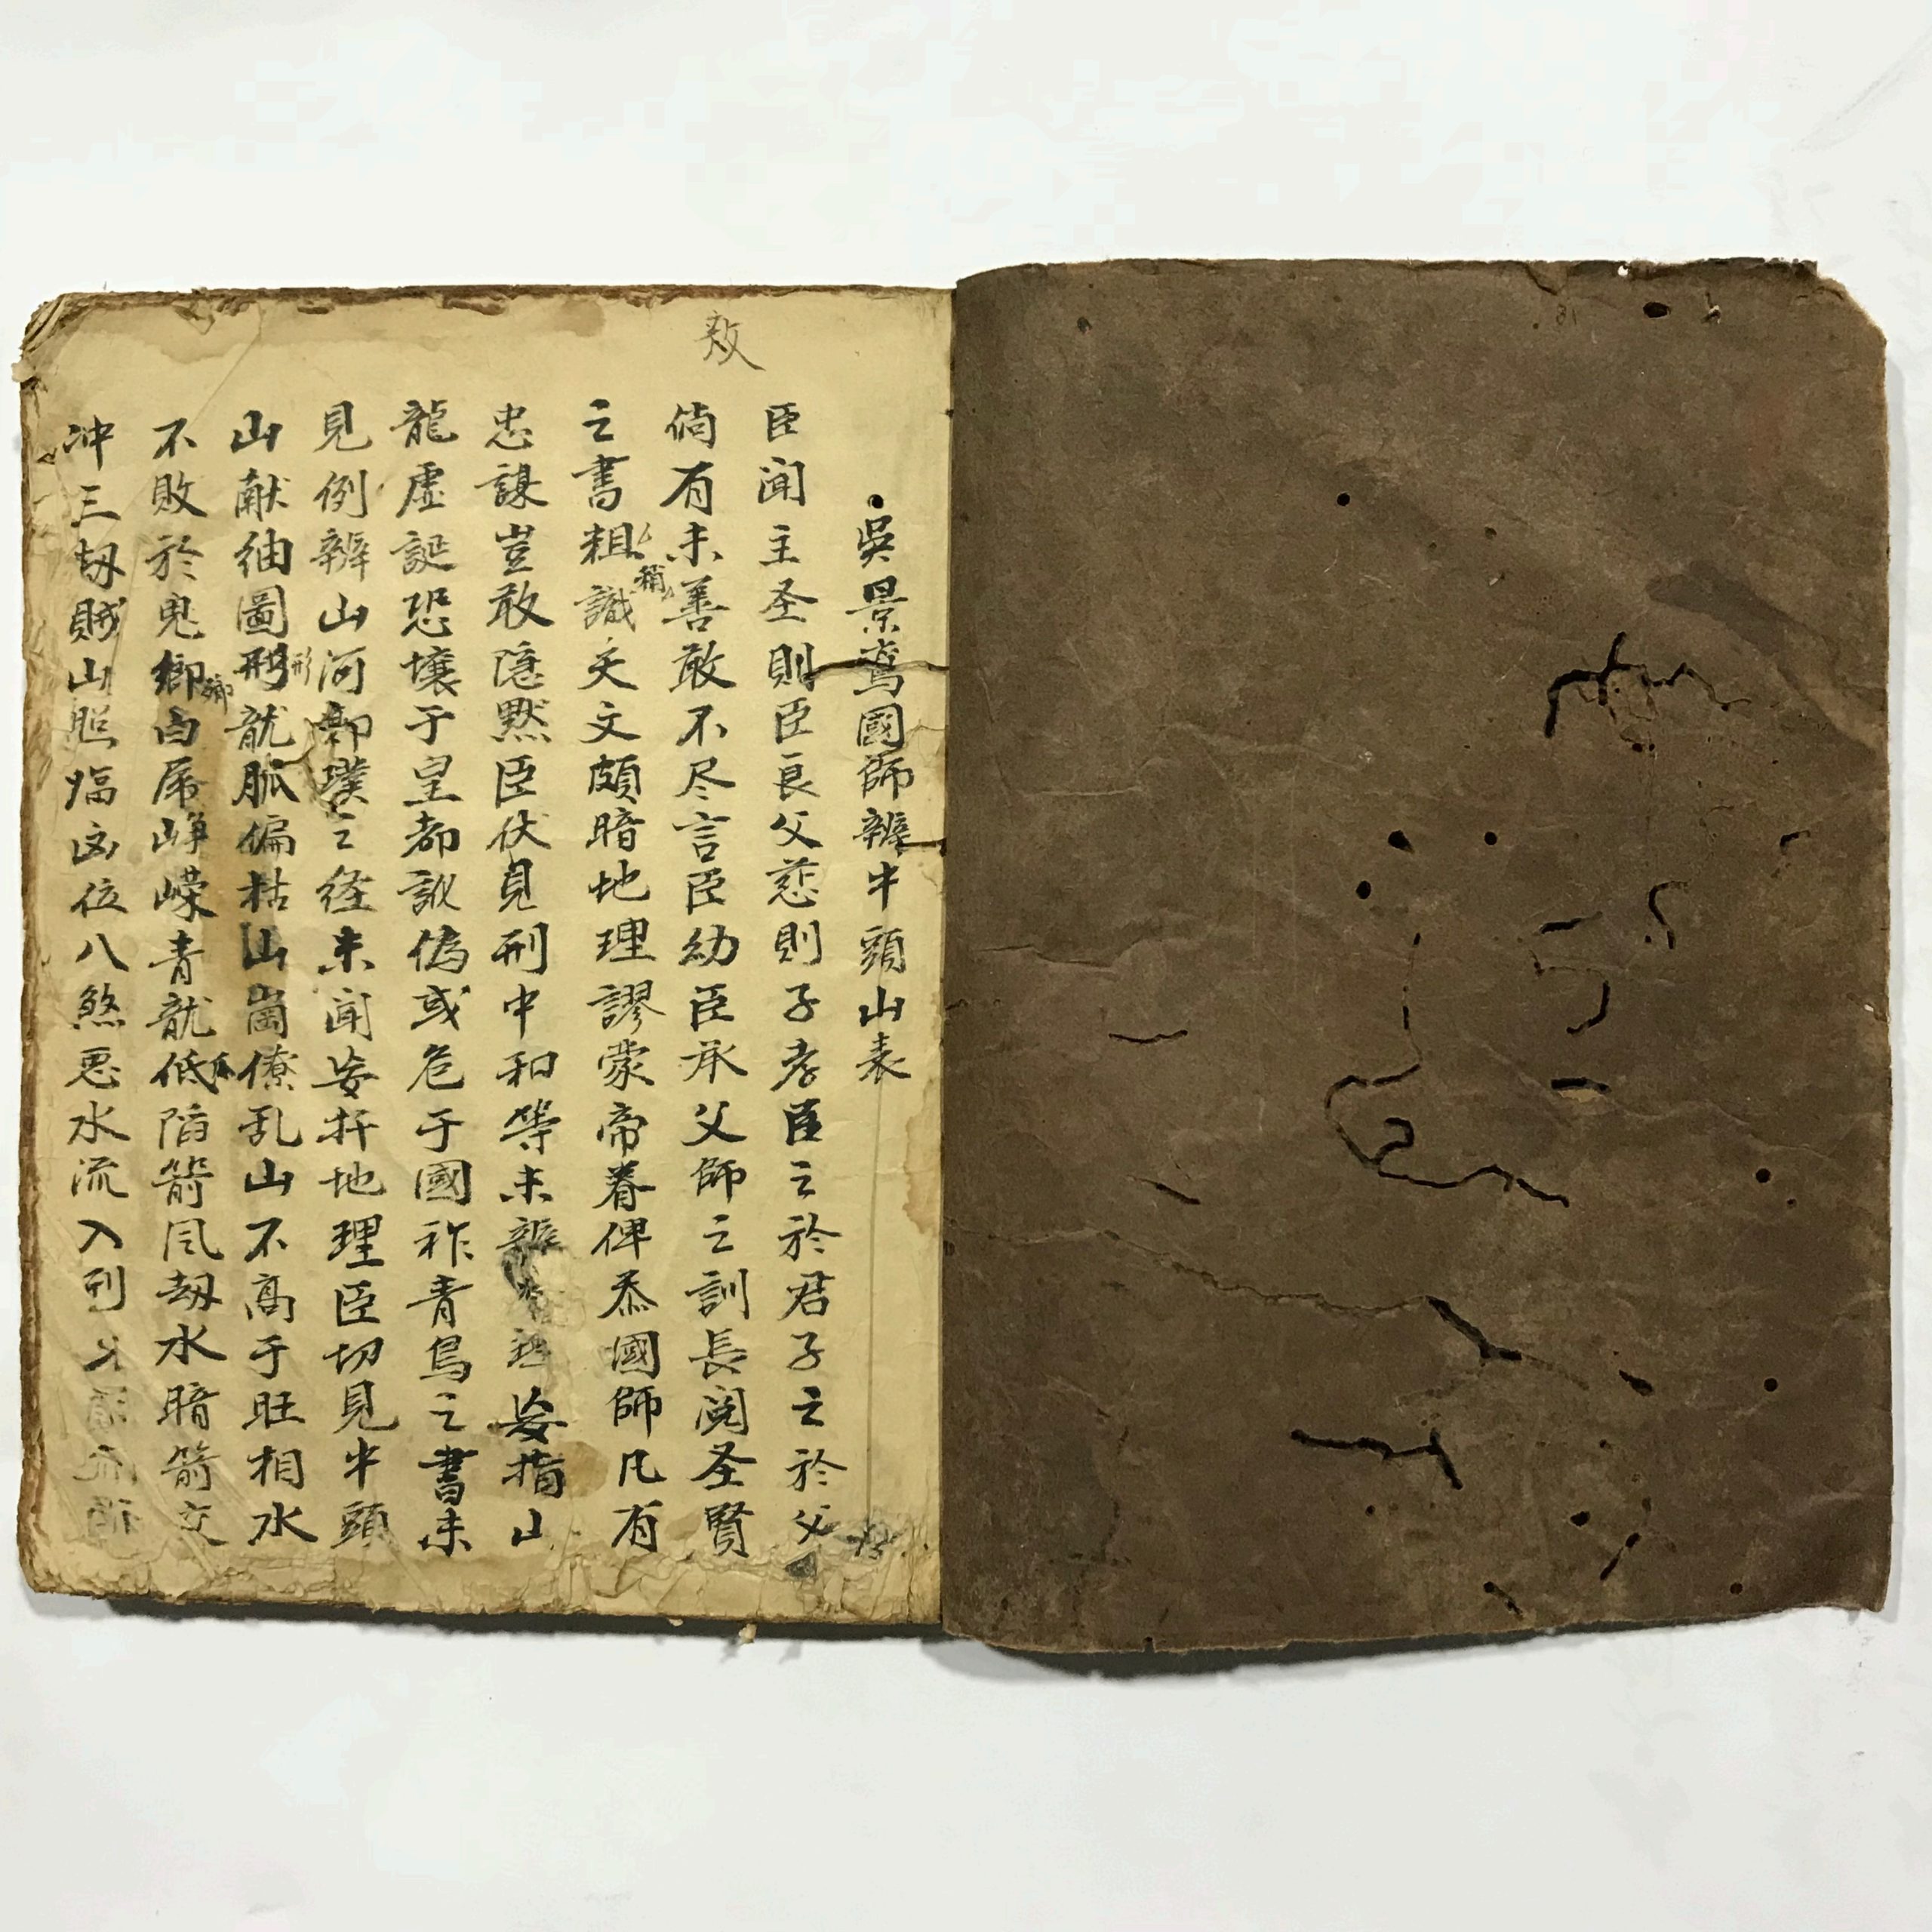 敖
吳景鸾國師辨牛頭山表
臣闻主圣則臣良父慈則子孝臣之於君子之於父
倘有未善敢不尽言臣幼臣承父師之訓長阅圣賢
之書粗識天文頗暗地理謬蒙帝眷俾忝國師凡有
稍
忠謀豈敢隐黙臣伏見刑中和等未辨妄指山
龍虛誕恐壤于皇都訛偽或危于國祚青烏之書未
見例辨山河郭璞之经未闻妄扦地理臣切見牛頭
山献䌷圖形龍脈偏枯山崗僚乱山不高于旺相水
形
不敗於鬼鄉白虎峥嵘青龍低陷箭风劫水暗箭交
鄉
冲三刼賊山照临凶位八煞惡水流入刑